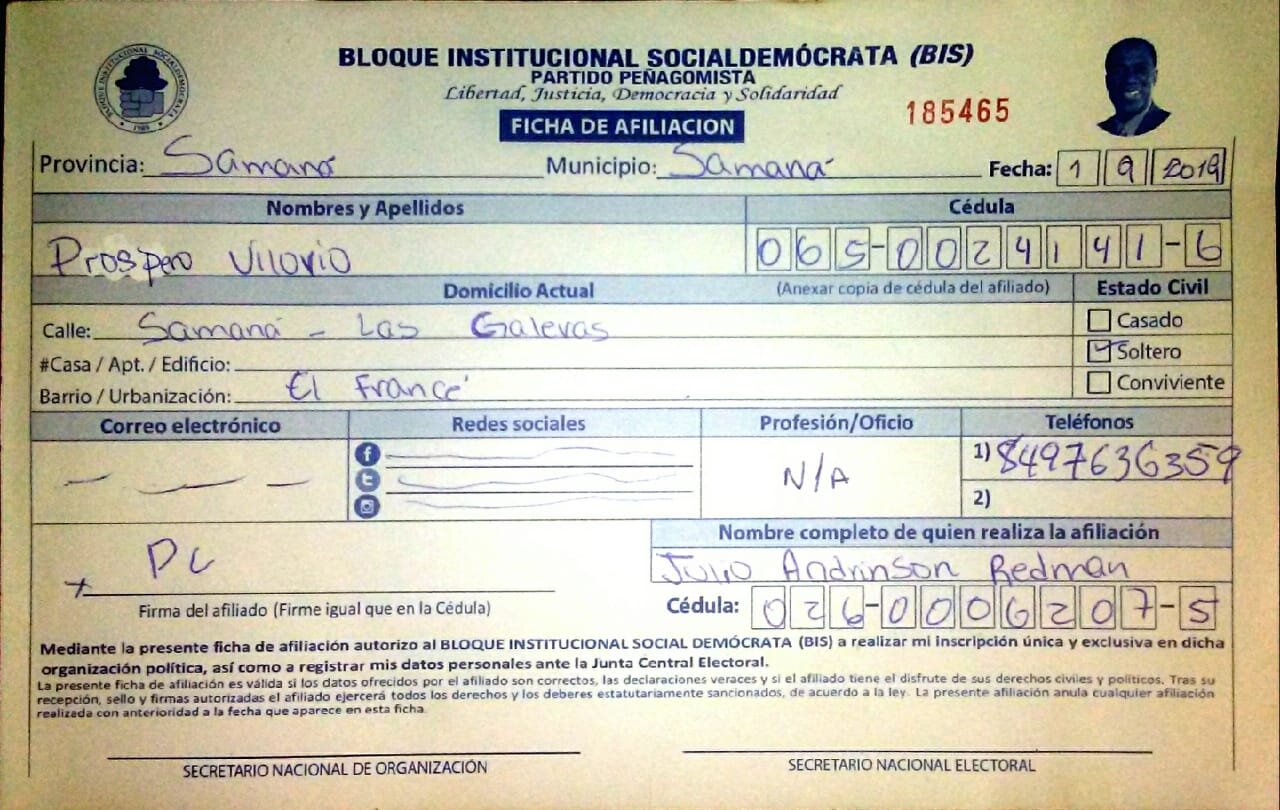 BLOQUE INSTITUCIONAL SOCIALDEMÓCRATA (BIS)
PARTIDO PEÑAGOMISTA
Libertad, Justicia, Democracia y Solidaridad
185465
FICHA DE AFILIACION
BLOQUE INSTITUCIONAL SOCIALDEMÓCRATA
1989
Provincia: Samaná Municipio: Samaná Fecha: 1 9 2019
Nombres y Apellidos Cédula
Prospero Vilorio 065-0024141-6
Domicilio Actual (Anexar copia de cédula del afiliado) Estado Civil
Calle: Samaná - Las Galeras
Casado
#Casa / Apt. / Edificio: Soltero
Barrio / Urbanización: El Francé Conviviente
Correo electrónico Redes sociales Profesión/Oficio Teléfonos
N/A 1) 8497636359
2)
Nombre completo de quien realiza la afiliación
Julio Andrinson Redman
Firma del afiliado (Firme igual que en la Cédula) Cédula: 026-0006207-5
Mediante la presente ficha de afiliación autorizo al BLOQUE INSTITUCIONAL SOCIAL DEMÓCRATA (BIS) a realizar mi inscripción única y exclusiva en dicha
organización política, así como a registrar mis datos personales ante la Junta Central Electoral.
La presente ficha de afiliación es válida si los datos ofrecidos por el afiliado son correctos, las declaraciones veraces y si el afiliado tiene el disfrute de sus derechos civiles y políticos. Tras su
recepción, sello y firmas autorizadas el afiliado ejercerá todos los derechos y los deberes estatutariamente sancionados, de acuerdo a la ley. La presente afiliación anula cualquier afiliación
realizada con anterioridad a la fecha que aparece en esta ficha.
SECRETARIO NACIONAL DE ORGANIZACIÓN SECRETARIO NACIONAL ELECTORAL